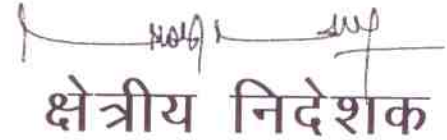 क्षेत्रीय निदेशक